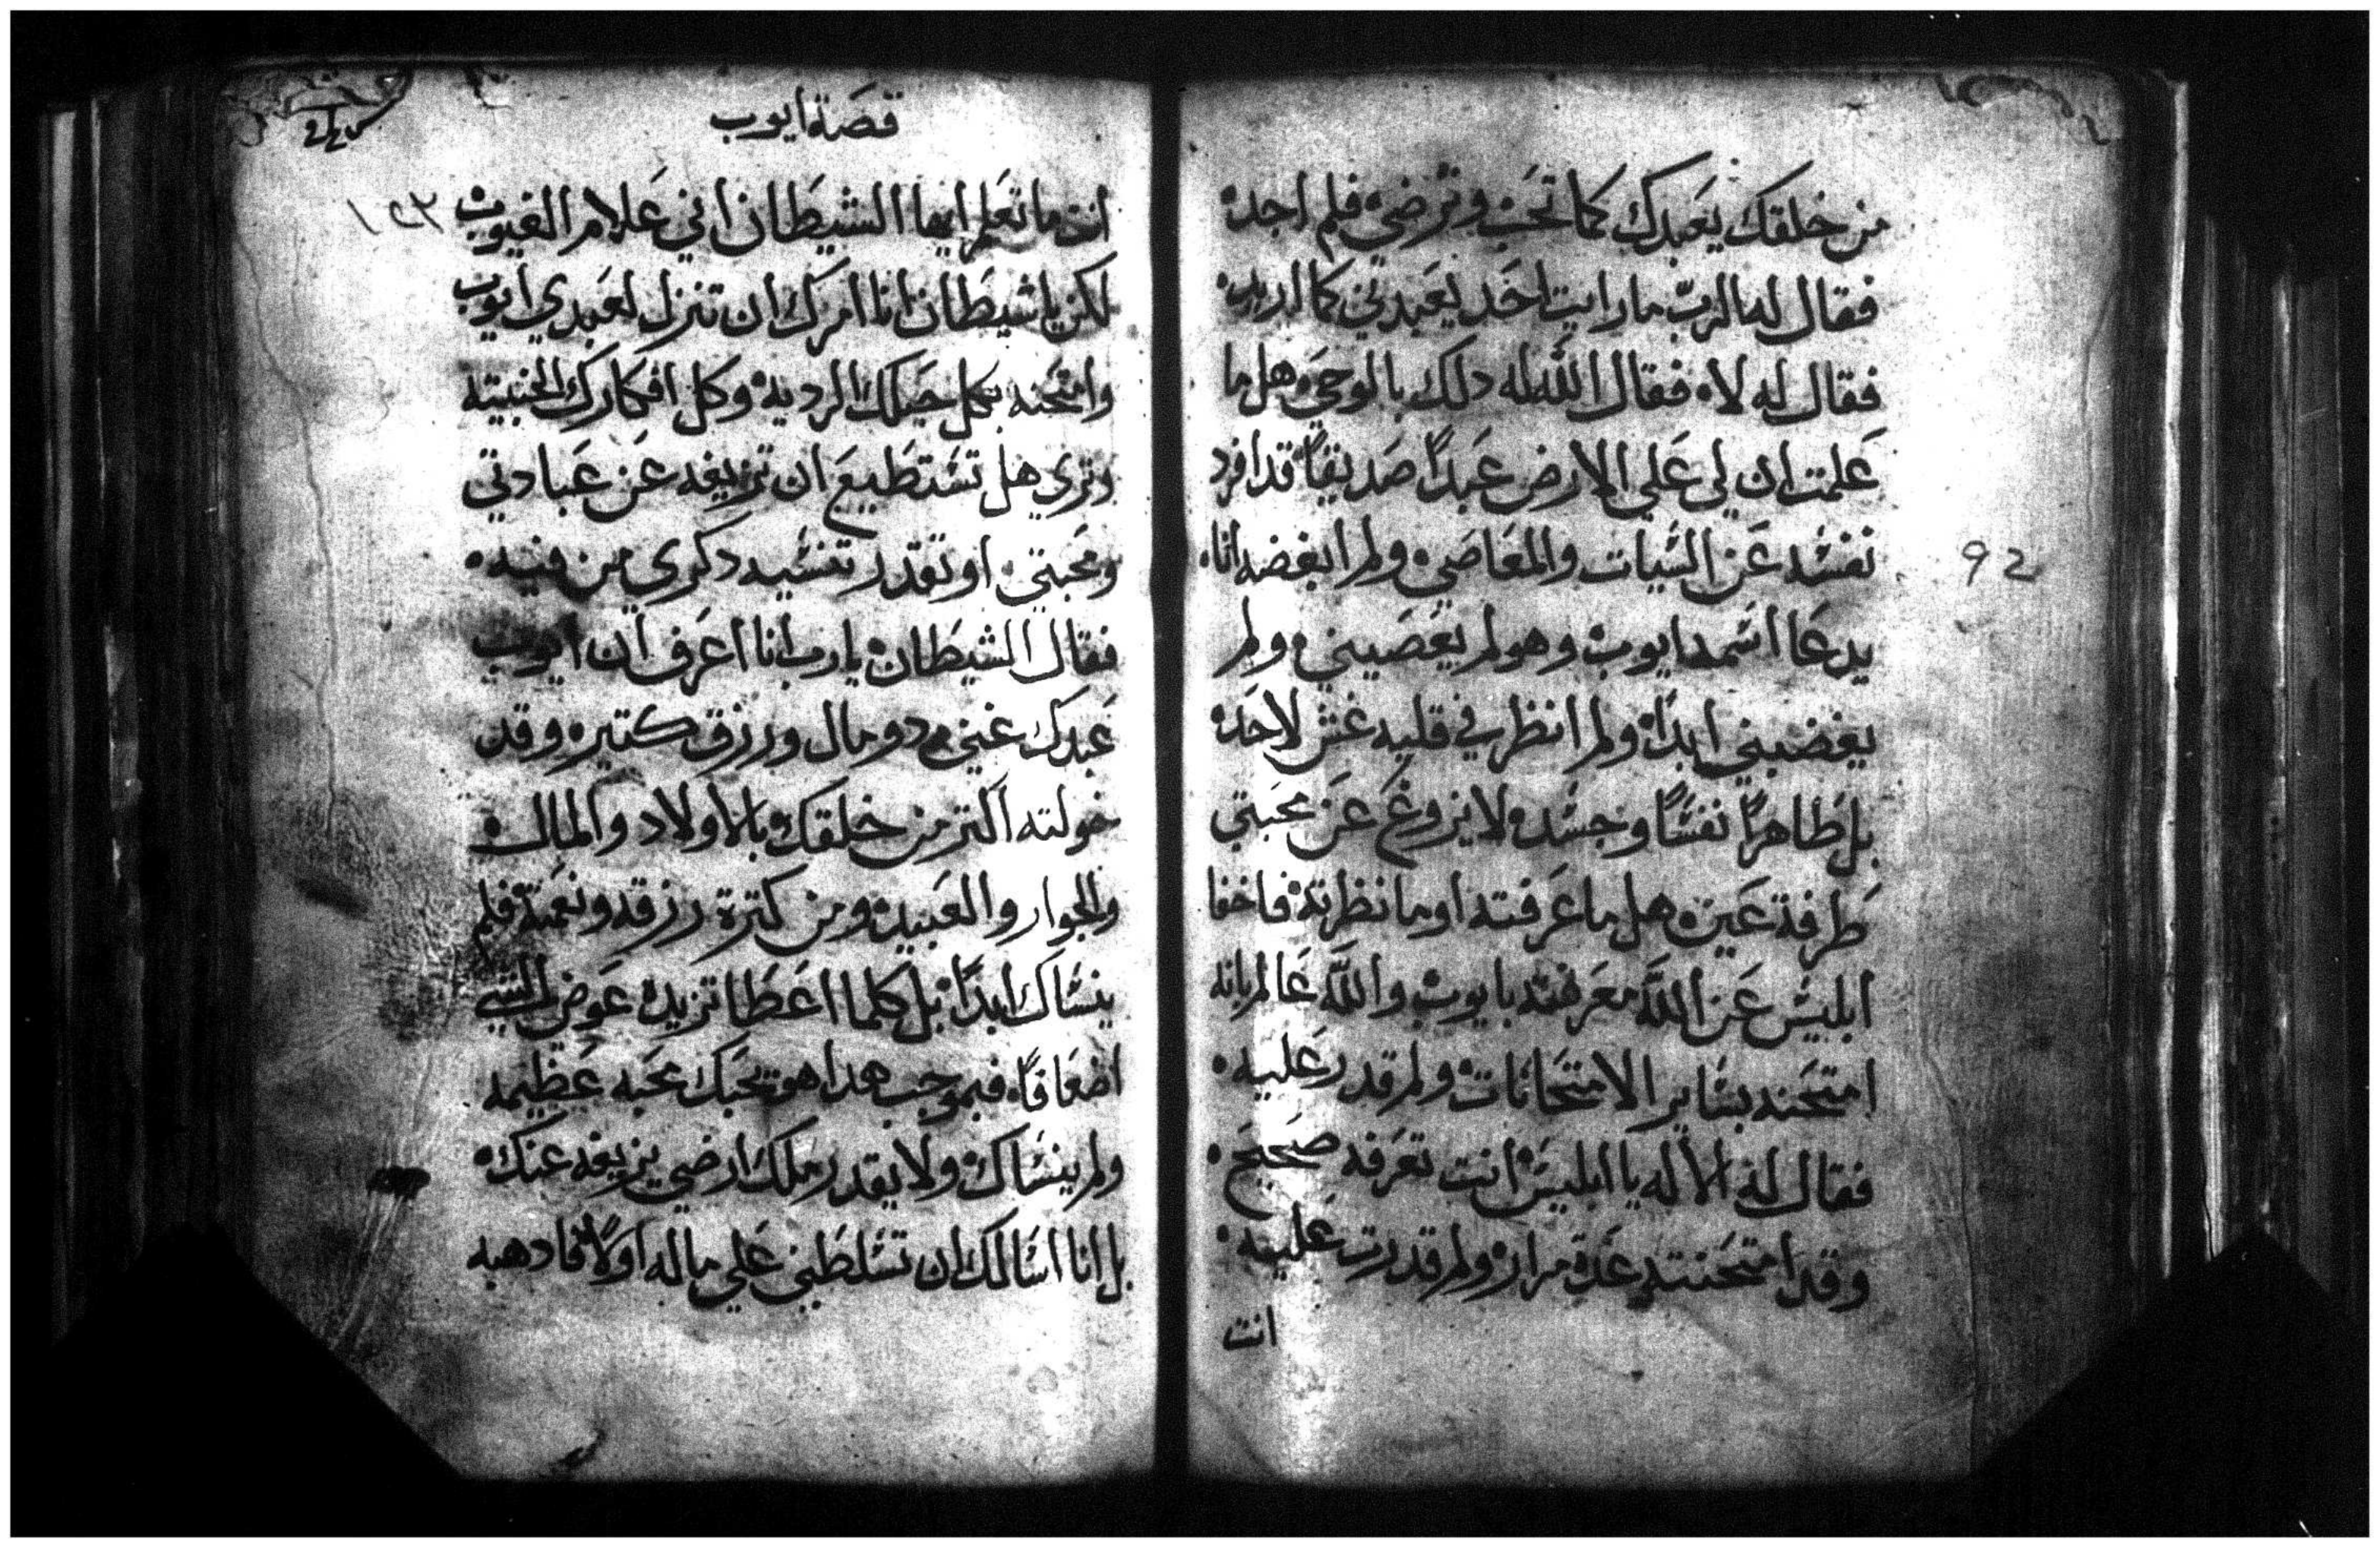 من خلقك يعبدك كما تحب وترضي فلم اجده
فقال له الرب ما رايت احد يعبدني كما اريد
فقال له لا فقال الله له دلك بالوحي هل ما
علمت ان لي علي الارض عبدًا صديقًا قد افرد
نفسه عن السيات والمعاصي ولم ابغضه انا
يدعا اسمه ايوب وهو لم يعصيني ولم
يغضبني ابدًا ولم انظر في قلبه غش لاحد
بل طاهرًا نفسًا وجسده لا يزوغ عن محبتي
طرفة عين هل ما عرفته او ما نظرته فاخفا
ابليس عن الله معرفته بايوب والله عالم بانه
امتحنه بساير الامتحانات ولم قدر عليه
فقال له الاله يا ابليس انت تعرفه صحيح
وقد امتحنته عدة مرار ولم قدرت عليه
انت
92
قصة ايوب
١٢٣
انت ما تعلم ايها الشيطان اني علام الغيوب
لكن يا شيطان انا امرك ان تنزل لعبدي ايوب
وامتحنه بكل حيلك الرديه وكل افكارك الخبيثه
وتري هل تستطيع ان تزيغه عن عبادتي
ومحبتي او تقدر تنسيه دكري من فيه
فقال الشيطان يا رب انا اعرف ان ايوب
عبدك غني دو مال ورزق كتير وقد
خولته اكتر من خلقك بالاولاد والمال
والجوار والعبيد ومن كترة رزقه ونعمته فلم
ينساك ابدًا بل كلما اعطا تزيده عوض الشي
اضعافًا فبموجب هدا هو يحبك محبه عظيمه
ولم ينساك ولا يقدر ملك ارضي يزيغه عنك
بل انا اسالك ان تسلطني علي ماله اولًا فادهبه